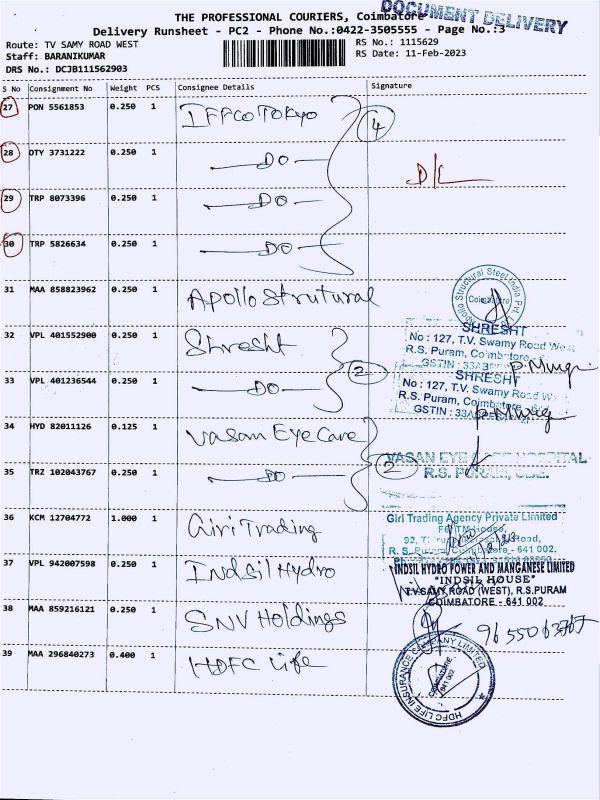 THE PROFESSIONAL COURIERS, Coimbatore
DOCUMENT DELIVERY
Delivery Runsheet - PC2 - Phone No.:0422-3505555 - Page No.:3
Route: TV SAMY ROAD WEST
RS No.: 1115629
Staff: BARANIKUMAR
RS Date: 11-Feb-2023
DRS No.: DCJB111562903
S No Consignment No Weight PCS Consignee Details Signature
27 PON 5561853 0.250 1 IFFCO TOKYO 4
28 DTY 3731222 0.250 1 DO
D/L
29 TRP 8073396 0.250 1 DO
30 TRP 5826634 0.250 1 DO
31 MAA 858823962 0.250 1 Apollo Strutural
Apollo Structural Steel India Pvt. Ltd
Coimbatore
32 VPL 401552900 0.250 1 Shresht 2
SHRESHT
No : 127, T.V. Swamy Road West
R.S. Puram, Coimbatore
GSTIN : 33AB
33 VPL 401236544 0.250 1 DO
SHRESHT
No : 127, T.V. Swamy Road
R.S. Puram, Coimbatore
GSTIN : 33A
34 HYD 82011126 0.125 1 Vasan Eye Care 2
VASAN EYE CARE HOSPITAL
R.S. PURAM, CBE.
35 TRZ 102043767 0.250 1 DO
36 KCM 12704772 1.000 1 Giri Trading
Giri Trading Agency Private Limited
92, T. Road,
R. S. Puram, Coimbatore - 641 002,
37 VPL 942007598 0.250 1 Indsil Hydro
INDSIL HYDRO POWER AND MANGANESE LIMITED
"INDSIL HOUSE"
T.V.SAMY ROAD (WEST), R.S.PURAM
COIMBATORE - 641 002
38 MAA 859216121 0.250 1 SNV Holdings
39 MAA 296840273 0.400 1 HDFC Life
HDFC LIFE INSURANCE COMPANY LIMITED
COIMBATORE
641 002